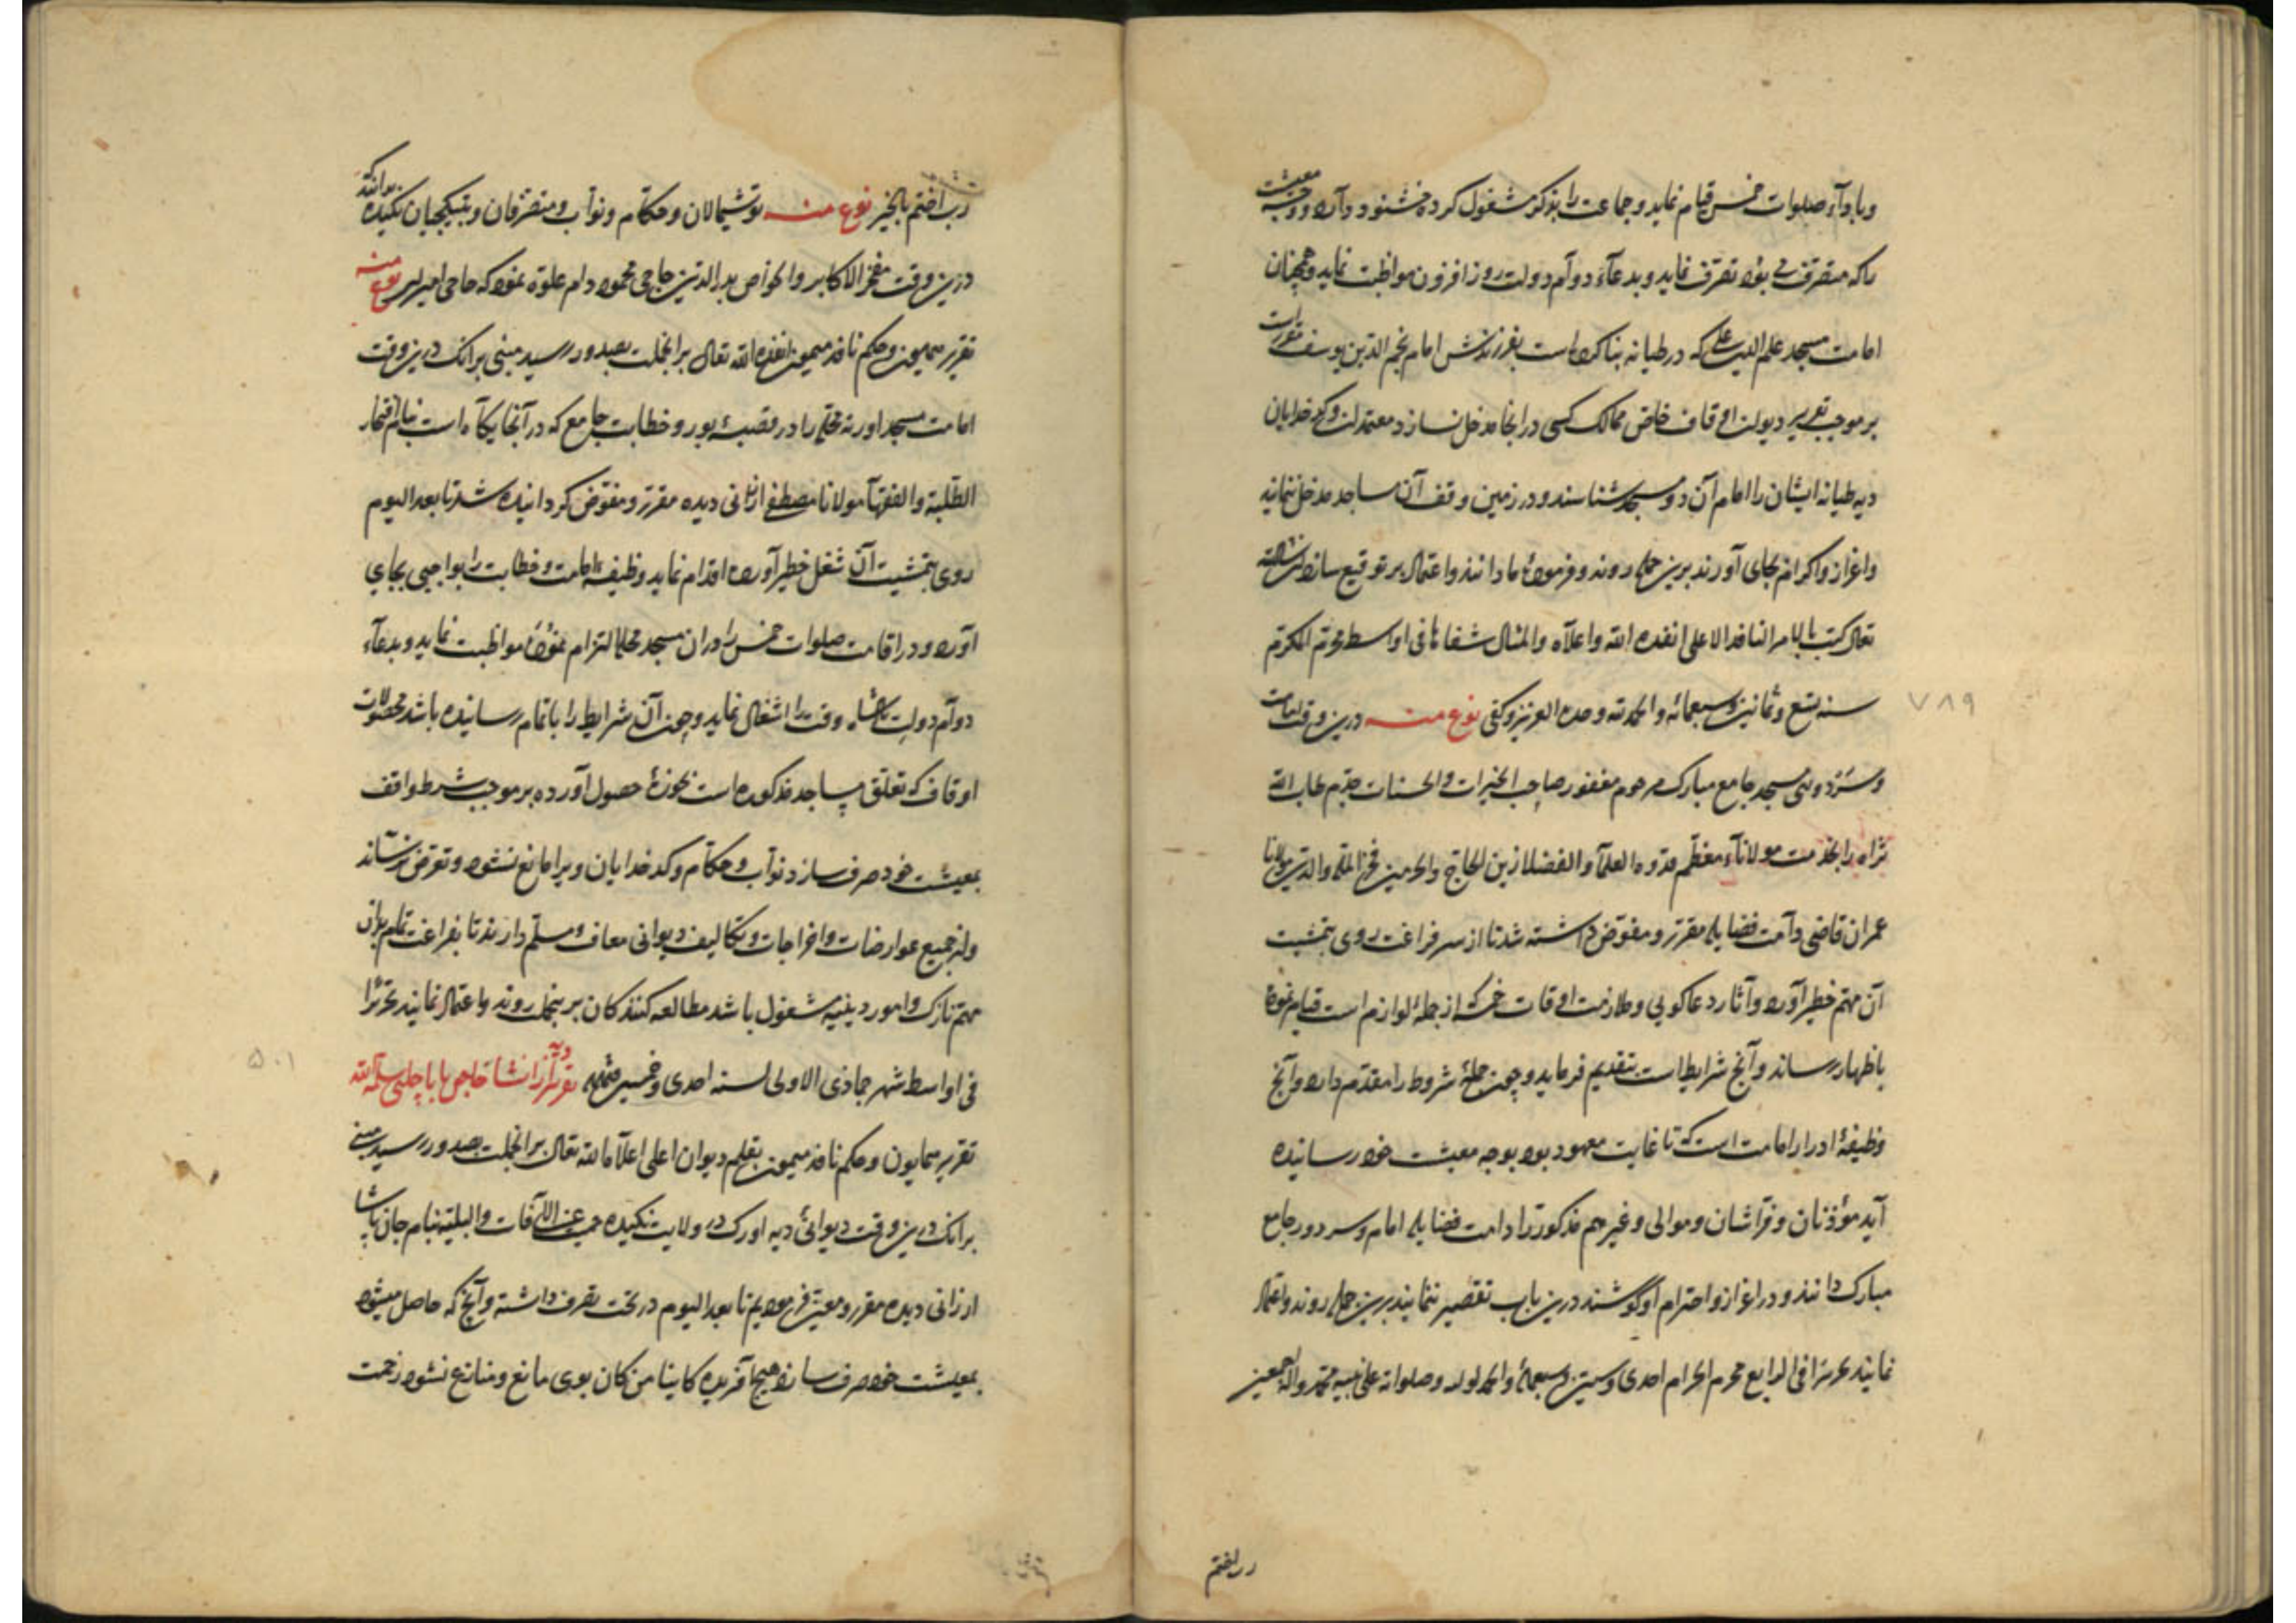 وبادآء صلوات خمس قیام نماید وجماعت را بذکر مشغول کرده خشنود دارد ووجه معیشت
را که متصرف می بود تصرف نماید وبدعآء دوام دولت روز افزون مواظبت نماید وهمچنان
امامت مسجد علم الدین علی که در طیانه بنا کرده است بفرزندش امام نجم الدین یوسف مقرر است
بر موجب تقریر دیوان اوقاف خاص ممالک کسی در انجا مدخل نسازد معتمدان وکدخدایان
دیه طیانه ایشان را امام آن دو مسجد شناسند ودر زمین وقف آن مساجد مدخل ننمایند
واعزاز واکرام بجای آورند برین جمله روند وفرموده ما دانند واعتماد بر توقیع سازند ان شاء الله
تعالی کتب بالامر النافذ الاعلی انفذه الله واعلاه والمثال شفاها فی اواسط محرم المکرم
سنه تسع وثمانین وسبعمائه والحمد لله وحده العزیز وکفی نوع منه درین وقت امامت
۷۸۹
مسجد جامع مبارک مرحوم مغفور صاحب الخیرات والحسنات طاب الله
ثراه را بخدمت مولاناء معظم قدوه العلمآ والفضلا زین الحاج والحرمین فخر المله والدین مولانا
عمران قاضی دامت فضایله مقرر ومفوض داشته شد تا از سر فراغت روی بتمشیت
آن مهم خطیر آورد وآثار دعاکویی وملازمت اوقات خمسه که از جملهٔ لوازم است قیام نموده
باظهار رساند وآنچ شرایط است بتقدیم فرماید وچون جملهٔ شروط را مقدم دارد وآنچ
وظیفهٔ ادرار امامت است که تا غایت معهود بود بوجه معیشت خود رسانیده
آید مؤذنان وفراشان وموالی وغیرهم مذکور را دامت فضایله امام وسردور جامع
مبارک دانند ودر اعزاز واحترام او کوشند درین باب تقصیر ننمایند برین جمله روند واعتماد
نمایند تحریرا فی الرابع محرم الحرام احدی وستین وسبعمائه والحمد لولیه وصلواته علی نبیه محمد وآله اجمعین
رب اختم
رب اختم بالخیر نوع منه توشمالان وحکام ونواب ومتصرفان وبتیکچیان نکیده بدانند که
درین وقت مفخر الاکابر والخواص بدر الدین حاجی محمود دام علوه نمود که حاجی امیر نوع منه
تقریر همایون وحکم نافذ میمون انفذه الله تعالی برانجملت بصدور رسید مبنی برانک درین وقت
امامت مسجد محله را در قصبهٔ بور وخطابت جامع که در آنجا یکآه است بنام افتخار
الطلبة والفقهآ مولانا مصطفی ارزانی دیده مقرر ومفوض کردانیده شد تا بعد الیوم
روی بتمشیت آن شغل خطیر آورده اقدام نماید وظیفهٔ امامت وخطابت را بواجبی بجای
آورد ودر اقامت صلوات خمس را در ان مسجد محله التزام نموده مواظبت نماید وبدعآء
دوآم دولت وقت را اشغال نماید وچون آن شرایط را باتمام رسانیده باشد محصولات
اوقاف که تعلق بمساجد مذکوره است بحوزهٔ حصول آورده بر موجب شرط واقف
بمعیشت خود صرف سازد نواب وحکام وکدخدایان ویرا مانع نشوند وتعرض نرسانند
واز جمیع عوارضات واخراجات وتکالیف دیوانی معاف ومسلم دارند تا بفراغت تمام بدان
مهم نازک وامور دینیه مشغول باشد مطالعه کنندکان برینجمله روند واعتماد نمایند تحریرا
فی اواسط شهر جمادی الاولی لسنه احدی وخمسین تقریر دیگر از انشا خلجی بابا چلبی سلمه الله
۵۰۱
تقریر همایون وحکم نافذ میمون بقلم دیوان اعلی اعلاه الله تعالی برانجملت بصدور رسید مبنی
برانک درین وقت دیوانئ دیه اورک در ولایت نکیده حمیت عن الآفات والبلیه بنام جان پاشا
ارزانی دیده مقرر ومعین فرمودیم تا بعد الیوم در تحت تصرف داشته وآنچ که حاصل میشود
بمعیشت خود صرف سازد هیچ آفریده کاینا من کان بوی مانع ومنازع نشود زحمت